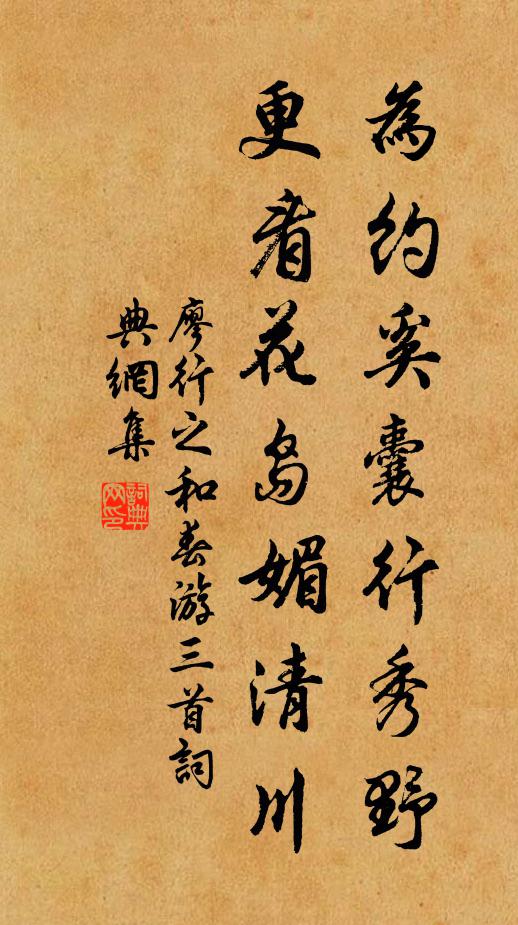 為約奚囊行秀野
更看花島媚清川
廖行之和春游三首詞
典網集
詞典
网印